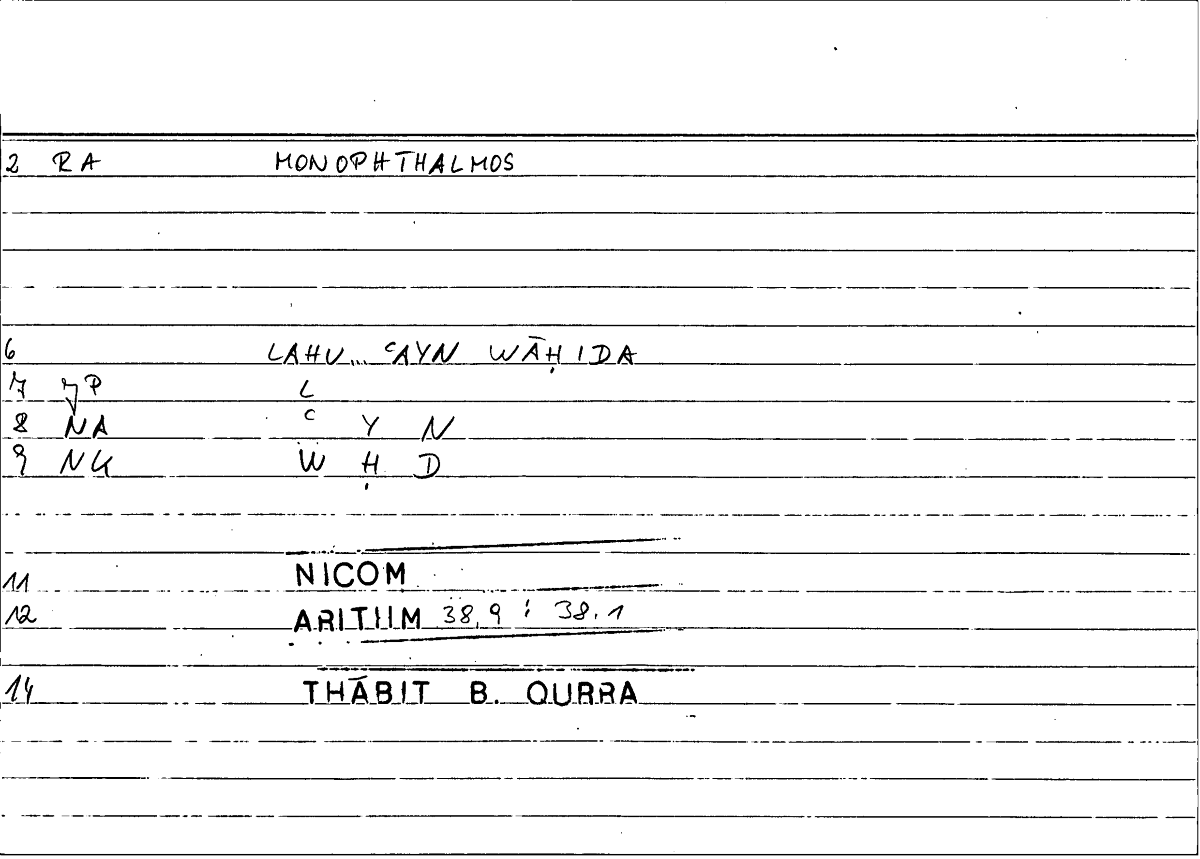 2 RA MONOPHTHALMOS
6 LAHU... ʿAYN WĀḤIDA
7 JP L
8 NA ʿ Y N
9 NG W Ḥ D
11 NICOM
12 ARITHM 38,9 : 38.1
14 THĀBIT B. QURRA